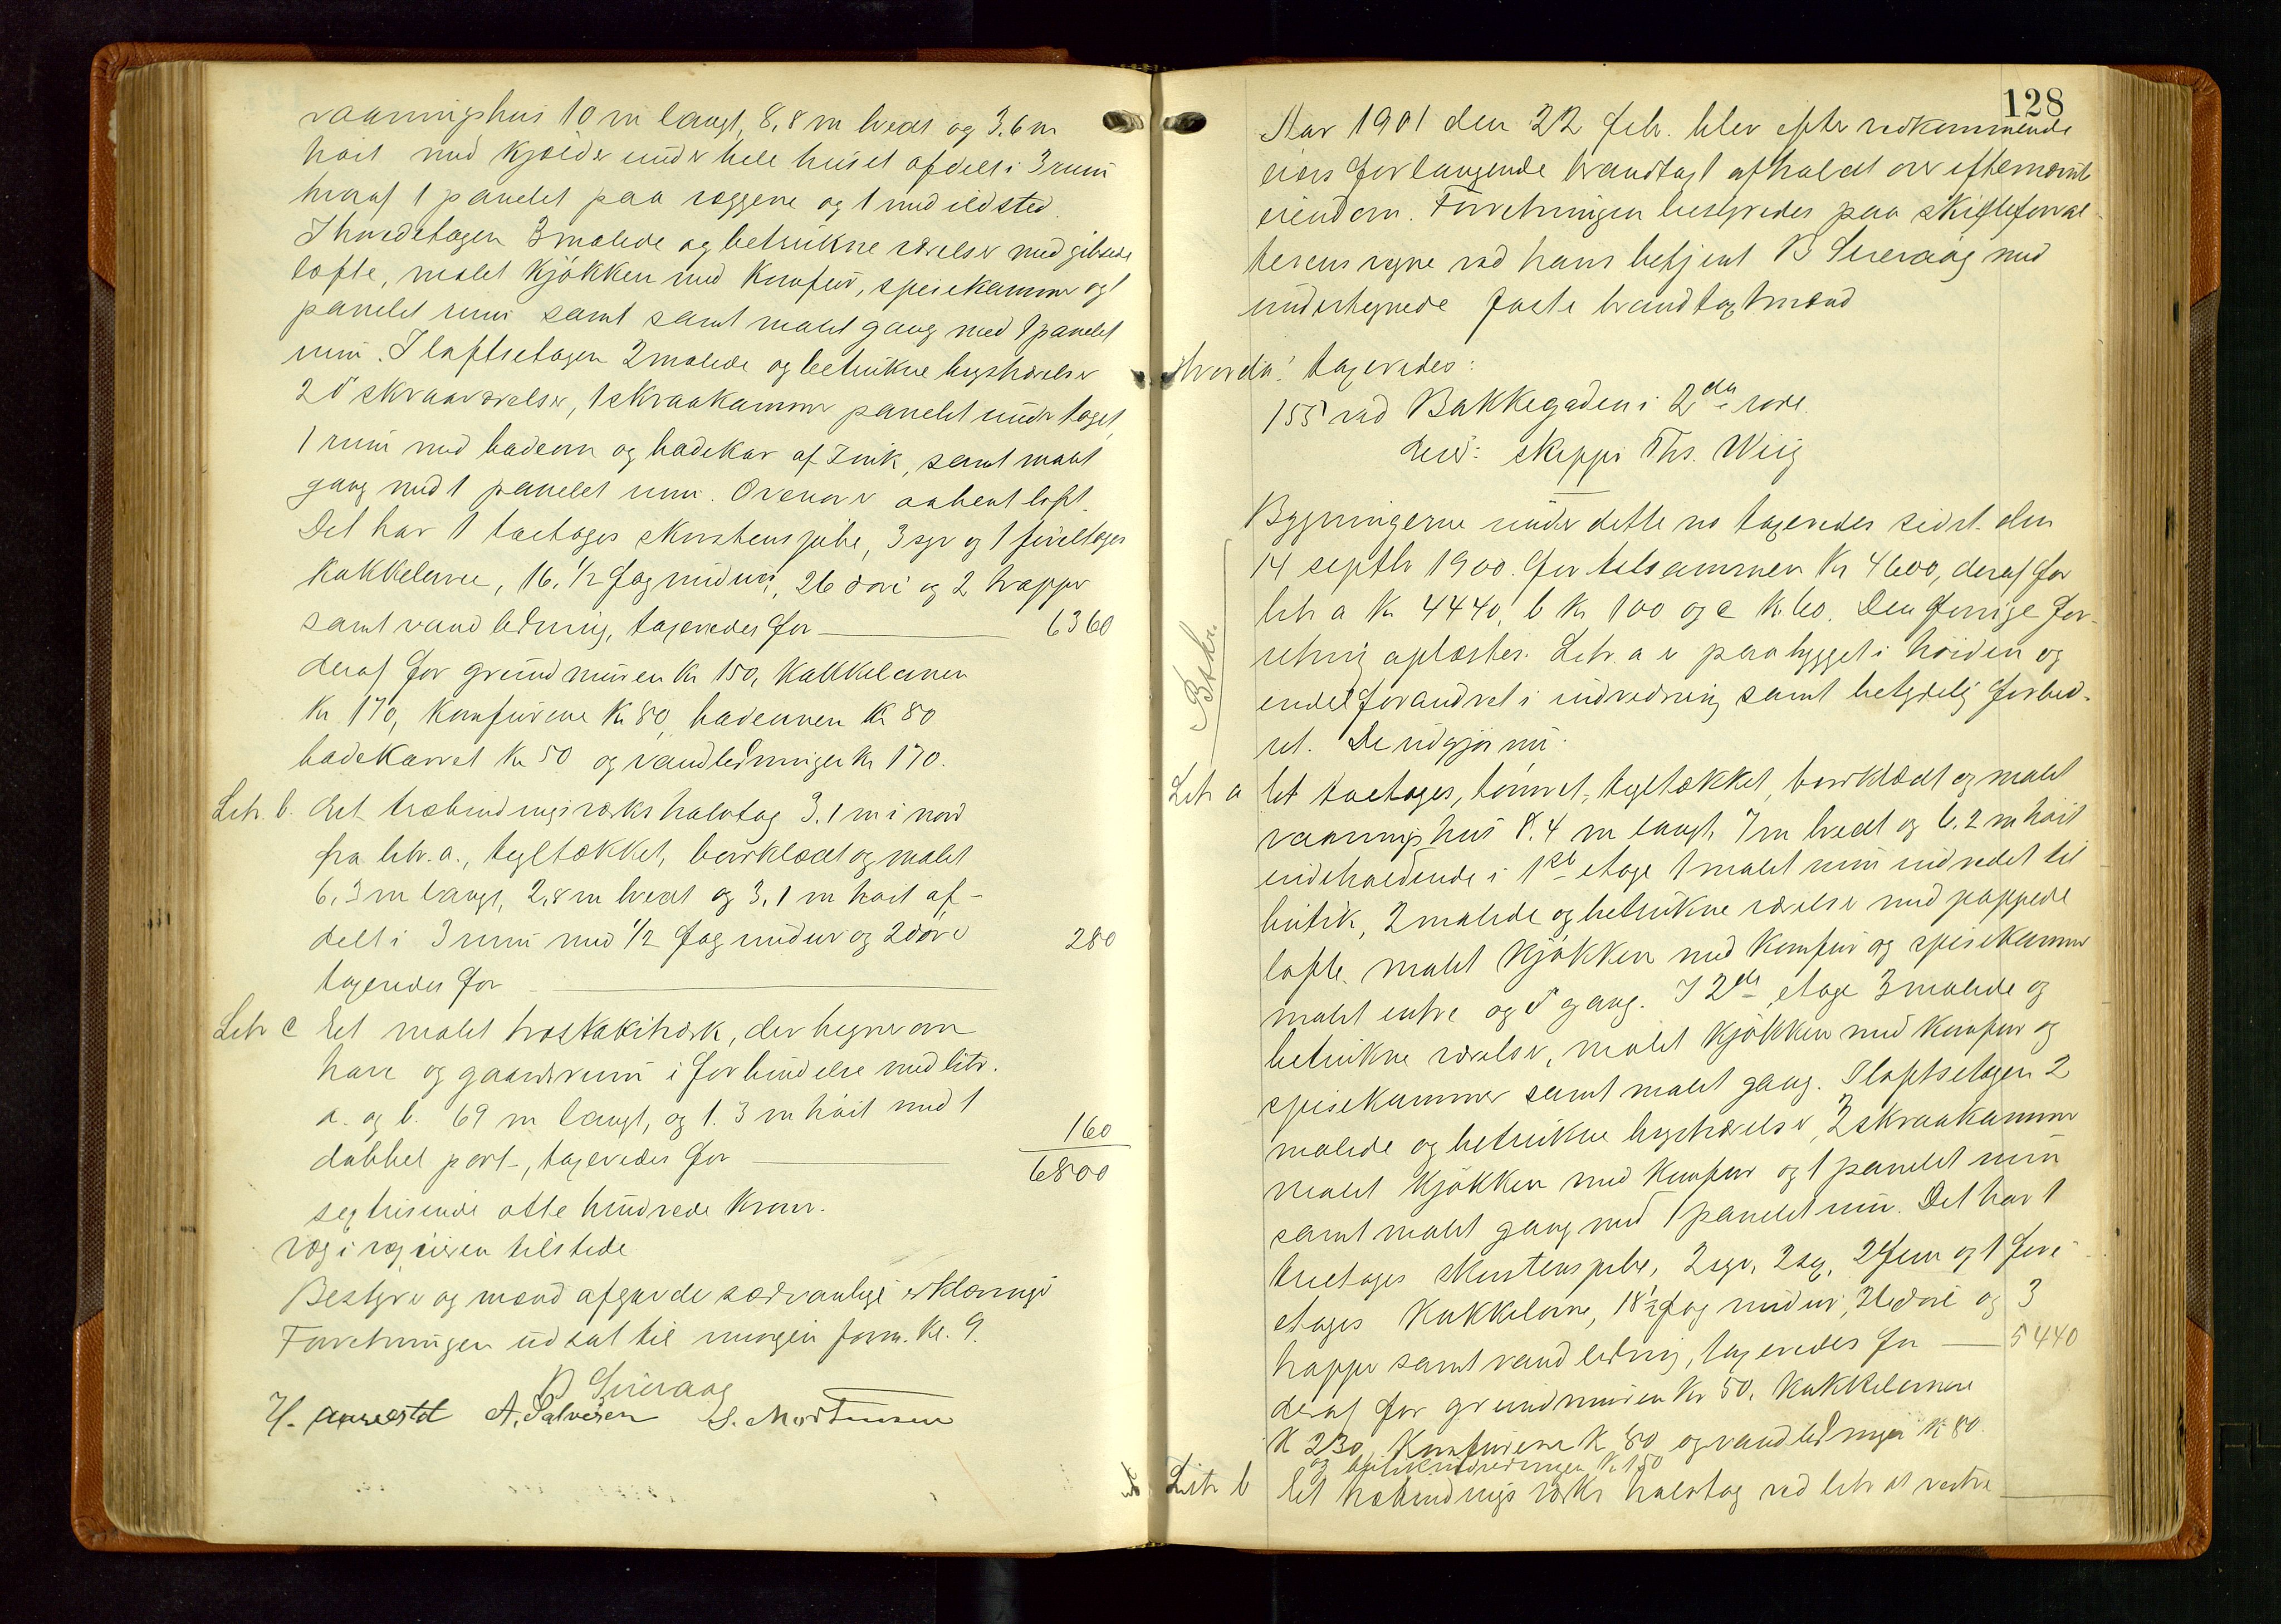 vaaningshus 10 m langt, 8,8 m bredt og 3.6 m
høit med kjælder under hele huset afdelt i 3 rum
hvoraf 1 panelet paa væggene og 1 med ildsted.
I hovedetagen 3 malede og betrukne værelser med gibsede
lofte, malet kjøkken med komfur, spisekammer og 1
panelet rum samt samt malet gang med 1 panelet
rum. I loftsetagen 2 malede og betrukne kvistværelser
2 do skraaværelser, 1 skraakammer panelet under taget,
1 rum med badeovn og badekar af Zink, samt malet
gang med 1 panelet rum. Ovenover aabent loft.
Det har 1 toetages skorstenspibe, 3 og 1 fireetages
kakkelovne, 16 1/2 fag vinduer, 26 døre og 2 trapper
samt vandledning, taxeredes for 6360
deraf for grundmuren Kr 150, kakkelovnen
Kr 170, komfurene Kr 80, badeovnen Kr 80
badekarret Kr 50 og vandledningen Kr 170.
Litr. b. Et træbindingsværks halvtag 3.1 m i nord
fra litr. a., tegltækket, bordklædt og malet
6,3 m langt, 2,8 m bredt og 3,1 m høit af-
delt i 3 rum med 1/2 fag vinduer og 2 døre
taxeredes for 280
Litr c Et malet træstakitværk, der hegner om
have og gaardsrum i forbindelse med litr.
a. og b. 69 m langt, og 1.3 m høit med 1
dobbel port, taxeredes for 160
6800
sextusende otte hundrede kroner.
eieren tilstede
Bestyrer og mænd afgav de sædvanlige erklæringer
Forretningen udsat til morgen form. Kl. 9.
B Sireraag
A. Salvesen S. Mortensen
128
Aar 1901 den 22 febr. blev efter vedkommende
eiers forlangende brandtaxt afholdt over efternævnte
eiendom. Forretningen bestyredes paa skifteforval-
terens vegne ved hans betjent B Sireraag med
undertegnede faste brandtaxtmænd
hvorda: taxeredes:
155 ved Bakkegaden i 2den rode.
skipper Ths. Wiig
Bygningerne under dette no taxeredes sidst den
14 septbr 1900 for tilsammen Kr 4600, deraf for
litr a Kr 4440, b Kr 100 og c Kr 60. Den forrige for-
retning oplæstes. Litr. a er paabygget i høiden og
endel forandret i indredning samt betydelig forbed-
ret. De udgjør nu:
Litr a Et toetages, tømret, tegltækket, bordklædt og malet
vaaningshus 8.4 m langt, 7 m bredt og 6.2 m høit
indeholdende i 1ste etage 1 malet rum indredet til
butik, 2 malede og betrukne værelser med pappede
lofte, malet kjøkken med komfur og spisekammer
malet entre og do gang. I 2den etage 3 malede og
betrukne værelser, malet kjøkken med komfur og
spisekammer samt malet gang. I loftsetagen 2
malede og betrukne kvistværelser, 2 skraakammer
malet kjøkken med komfur og 1 panelet rum
samt malet gang med 1 panelet rum. Det har 1
treetages skorstenspibe, 2 2 2 fem og 1 fire-
etages kakkelovne, 18 1/2 fag vinduer, døre og 3
trapper samt vandledning, taxeredes for 5440
deraf for grundmuren Kr 50, kakkelovnene
Kr 230, komfurene Kr 80 og vandledningen Kr 80.
og butikindredningen Kr 150
Litr b Et træbindingsværks halvtag ved litr a's vestre